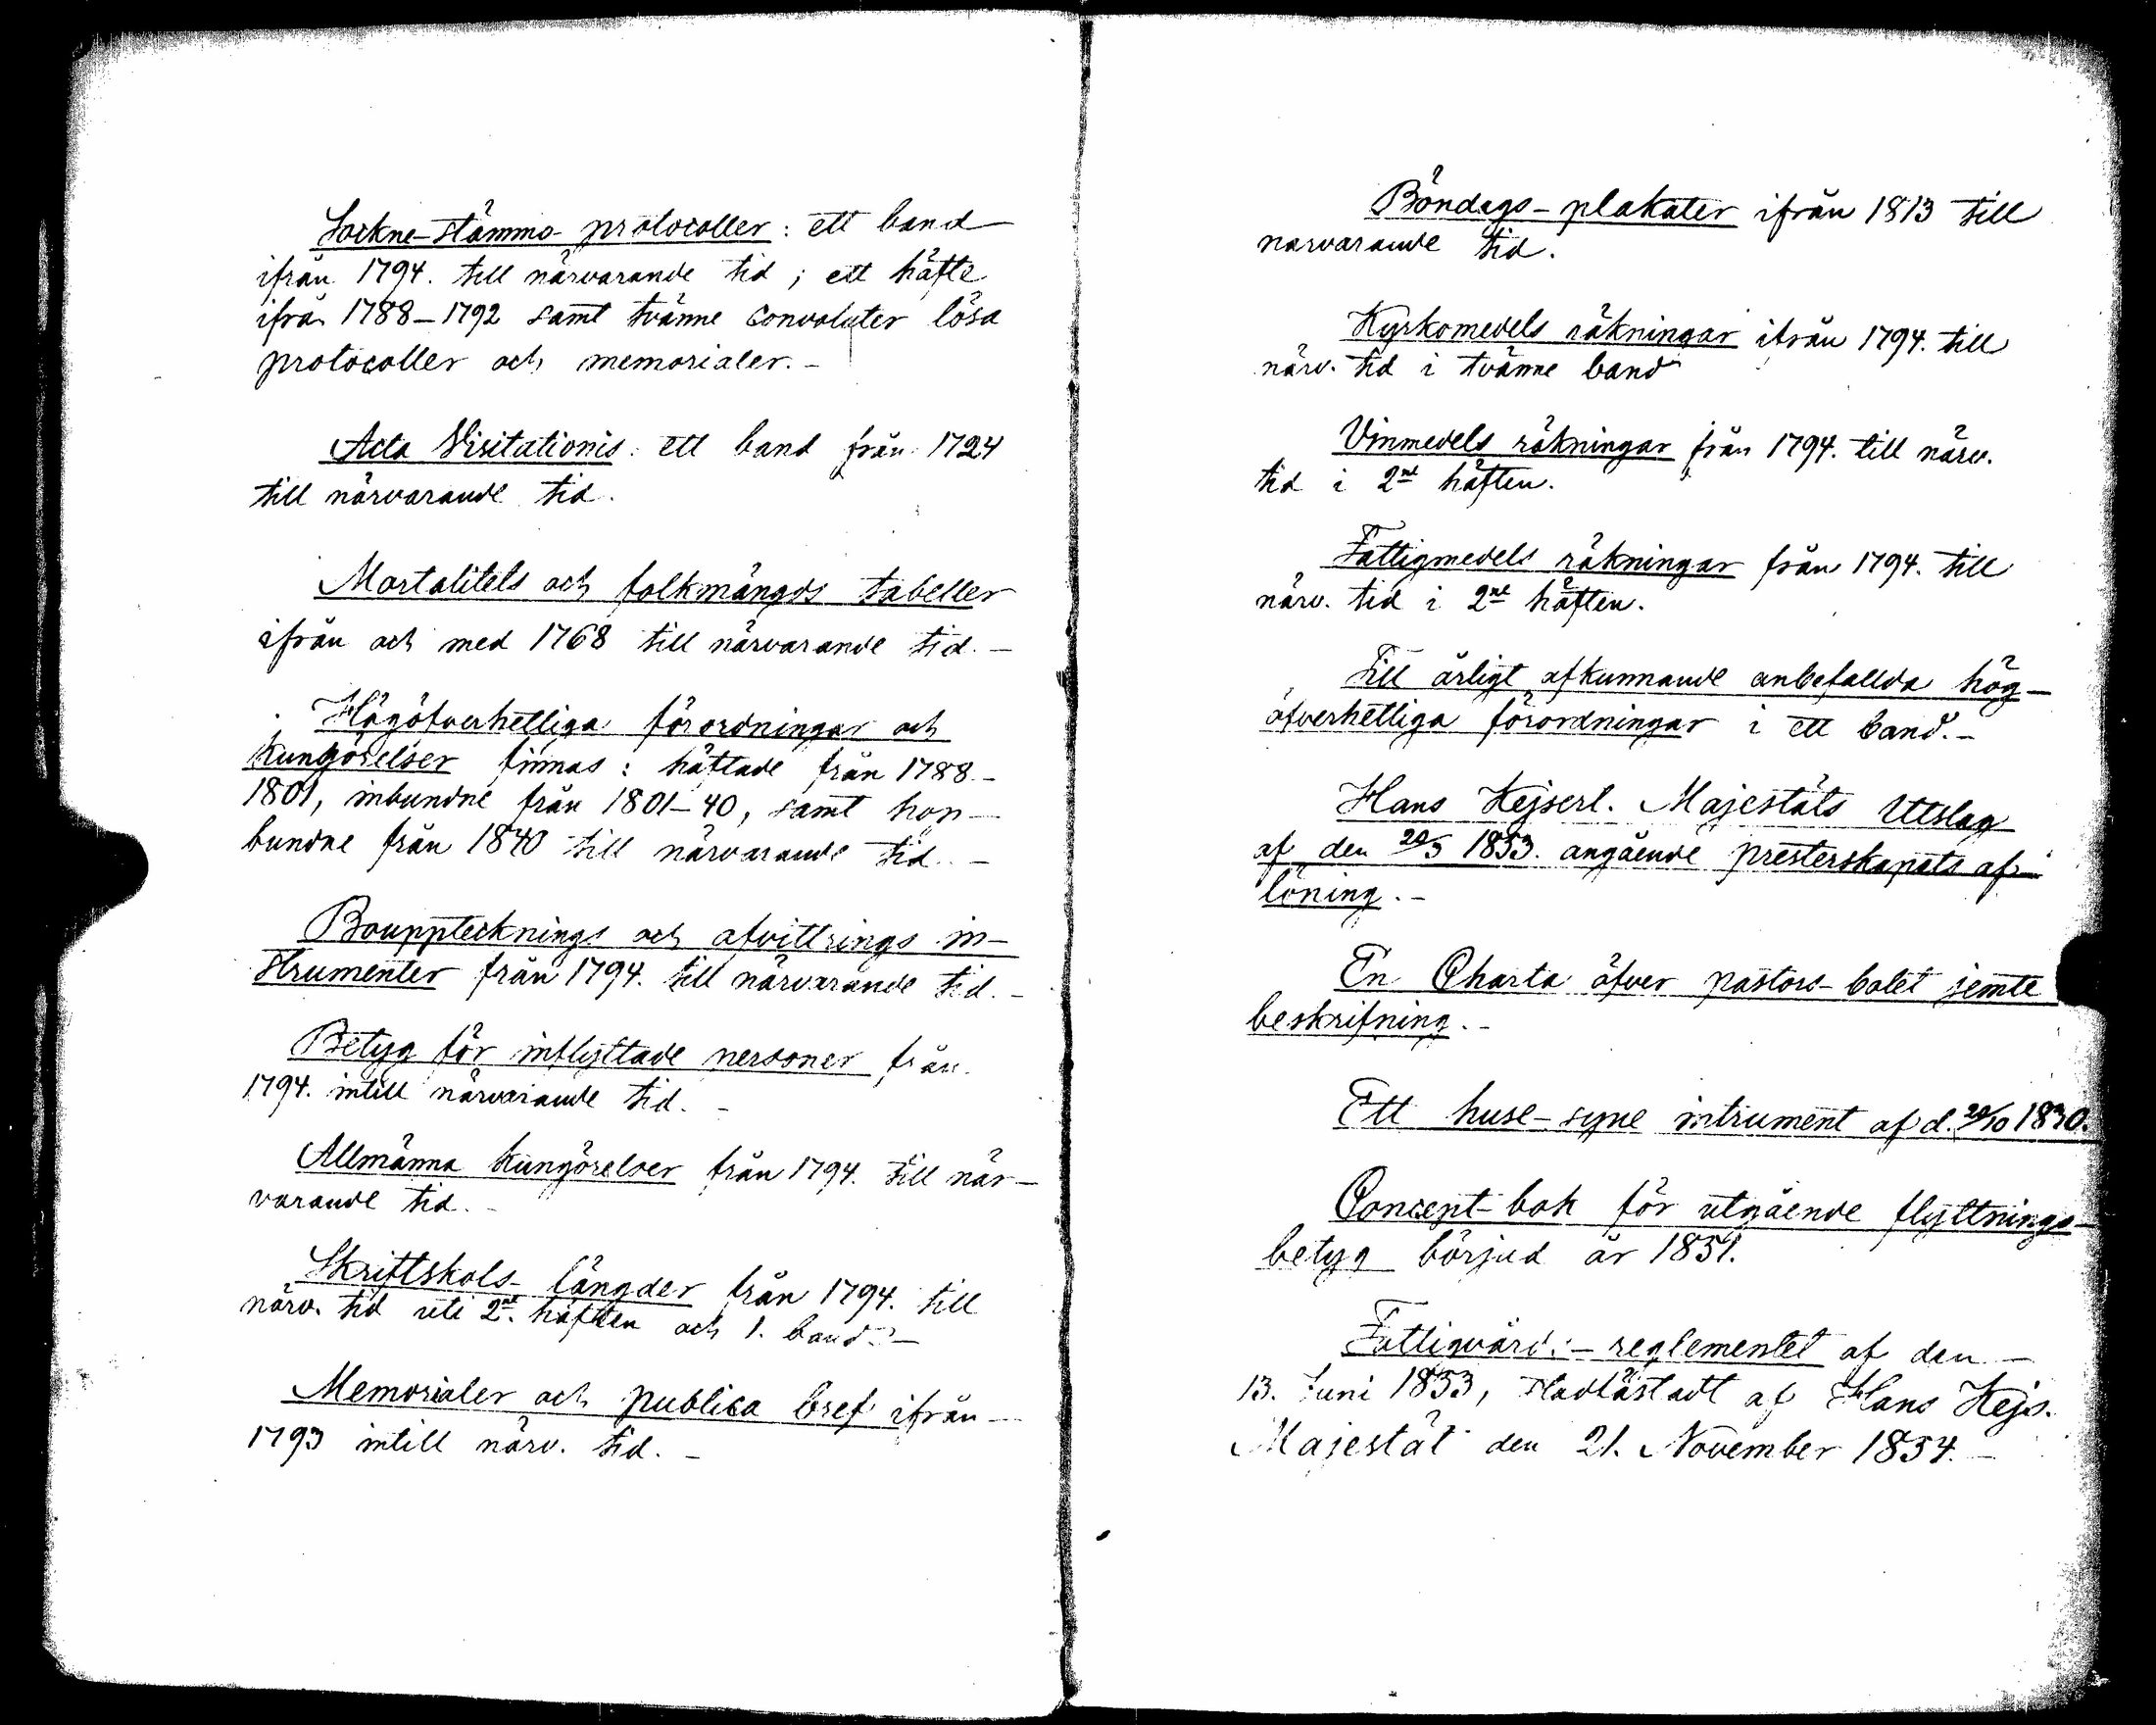 Sockne-stämmo-protocoller: ett band
ifrån 1794. till närvarande tid; ett häfte
ifrån 1788-1792 samt tvänne convoluter lösa
protocoller och memorialer.-
Acta Visitationis: ett band från 1724
till närvarande tid.
Mortalitets och folkmängds tabeller
ifrån och med 1768 till närvarande tid.-
Högöfverhetliga förordningar och
kungörelser finnas: häftade från 1788-
1801, inbundne från 1801-40, samt hop-
bundne från 1840 till närvarande tid.-
Bouppteckningss och afvittrings in-
strumenter från 1794. till närvarande tid.-
Betyg för inflyttade personer från
1794. intill närvarande tid.-
Allmänna kungörelser från 1794. till när-
varande tid.-
Skriftskols-längder från 1794. till
närv. tid uti 2ne. häften och 1. band.-
Memorialer och publica bref ifrån
1793 intill närv. tid.-
Böndags-plakater ifrån 1813 till
närvarande tid.
Kyrkomedels räkningar ifrån 1794. till
närv. tid i tvänne band
Vinmedels räkningar från 1794. till närv.
tid i 2ne häften.
Fattigmedels räkningar från 1794. till
närv. tid i 2ne häften.
Till årligt afkunnande anbefallda hög-
öfverhetliga förordningar i ett band.-
Hans Kejserl. Majestäts Utslag
af den 20/3 1853. angående presterskapets af-
löning.-
En Charta öfver pastors-bolet jemte
beskrifning.-
Ett huse-syne intrument af d. 29/10 1830.
Concept-bok för utgående flyttnings-
betyg börjad år 1851.
Fattigvårds-reglementet af den
13. Juni 1853, stadfästadt af Hans Kejs.
Majestät den 21. November 1854.-